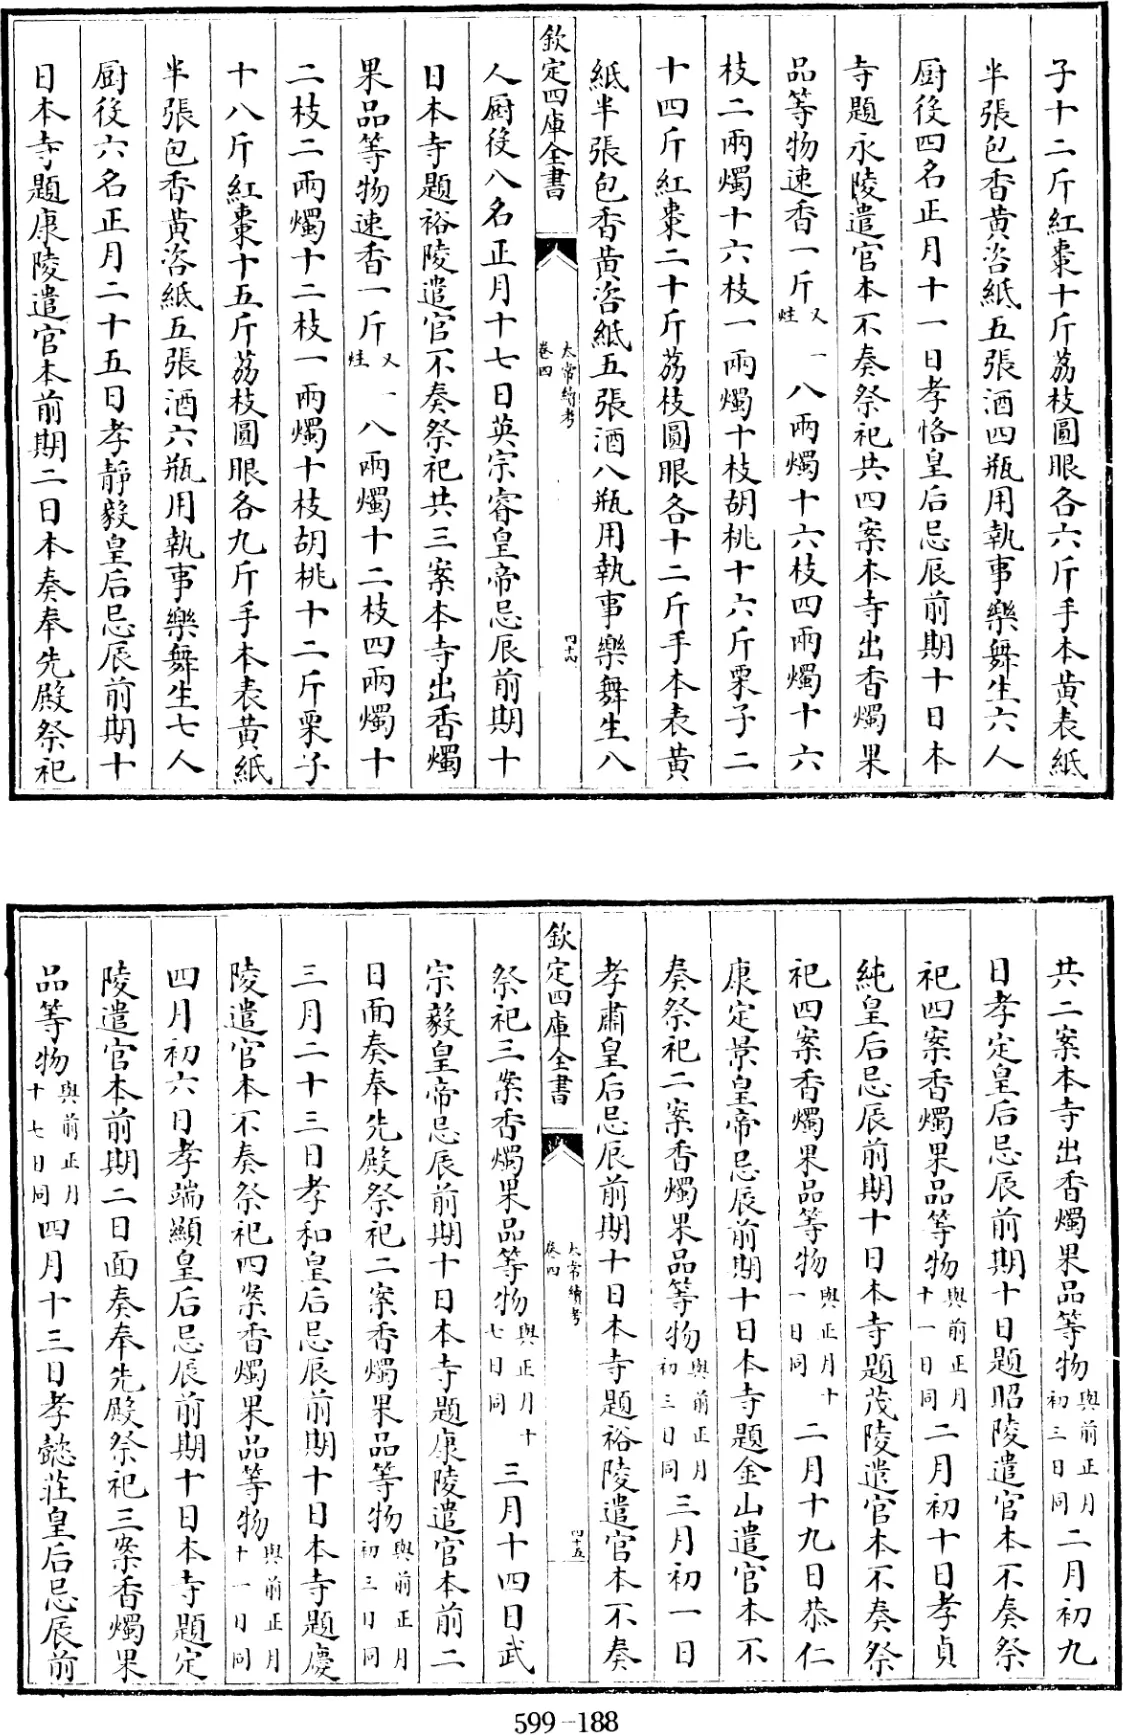 子十二斤紅棗十斤荔枝圓眼各六斤手本黄表紙
半張包香黄咨紙五張酒四瓶用執事樂舞生六人
厨役四名正月十一日孝恪皇后忌辰前期十日本
寺題永陵遣官本不奏祭祀共四案本寺出香燭果
品等物速香一斤又一炷八兩燭十六枝四兩燭十六
枝二兩燭十六枝一兩燭十枝胡桃十六斤栗子二
十四斤紅棗二十斤荔枝圓眼各十二斤手本表黄
紙半張包香黄咨紙五張酒八瓶用執事樂舞生八
欽定四庫全書
太常續考
卷四
四十四
人厨役八名正月十七日英宗睿皇帝忌辰前期十
日本寺題裕陵遣官不奏祭祀共三案本寺出香燭
果品等物速香一斤又一炷八兩燭十二枝四兩燭十
二枝二兩燭十二枝一兩燭十枝胡桃十二斤栗子
十八斤紅棗十五斤荔枝圓眼各九斤手本表黄紙
半張包香黄咨紙五張酒六瓶用執事樂舞生七人
厨役六名正月二十五日孝靜毅皇后忌辰前期十
日本寺題康陵遣官本前期二日本奏奉先殿祭祀
共二案本寺出香燭果品等物與前正月初三日同二月初九
日孝定皇后忌辰前期十日題昭陵遣官本不奏祭
祀四案香燭果品等物與前正月十一日同二月初十日孝貞
純皇后忌辰前期十日本寺題茂陵遣官本不奏祭
祀四案香燭果品等物與正月十一日同二月十九日恭仁
康定景皇帝忌辰前期十日本寺題金山遣官本不
奏祭祀二案香燭果品等物與前正月初三日同三月初一日
孝肅皇后忌辰前期十日本寺題裕陵遣官本不奏
欽定四庫全書
太常續考
卷四
四十五
祭祀三案香燭果品等物與正月十七日同三月十四日武
宗毅皇帝忌辰前期十日本寺題康陵遣官本前二
日面奏奉先殿祭祀二案香燭果品等物與前正月初三日同
三月二十三日孝和皇后忌辰前期十日本寺題慶
陵遣官本不奏祭祀四案香燭果品等物與前正月十一日同
四月初六日孝端顯皇后忌辰前期十日本寺題定
陵遣官本前期二日面奏奉先殿祭祀三案香燭果
品等物與前正月十七日同四月十三日孝懿莊皇后忌辰前
599-188